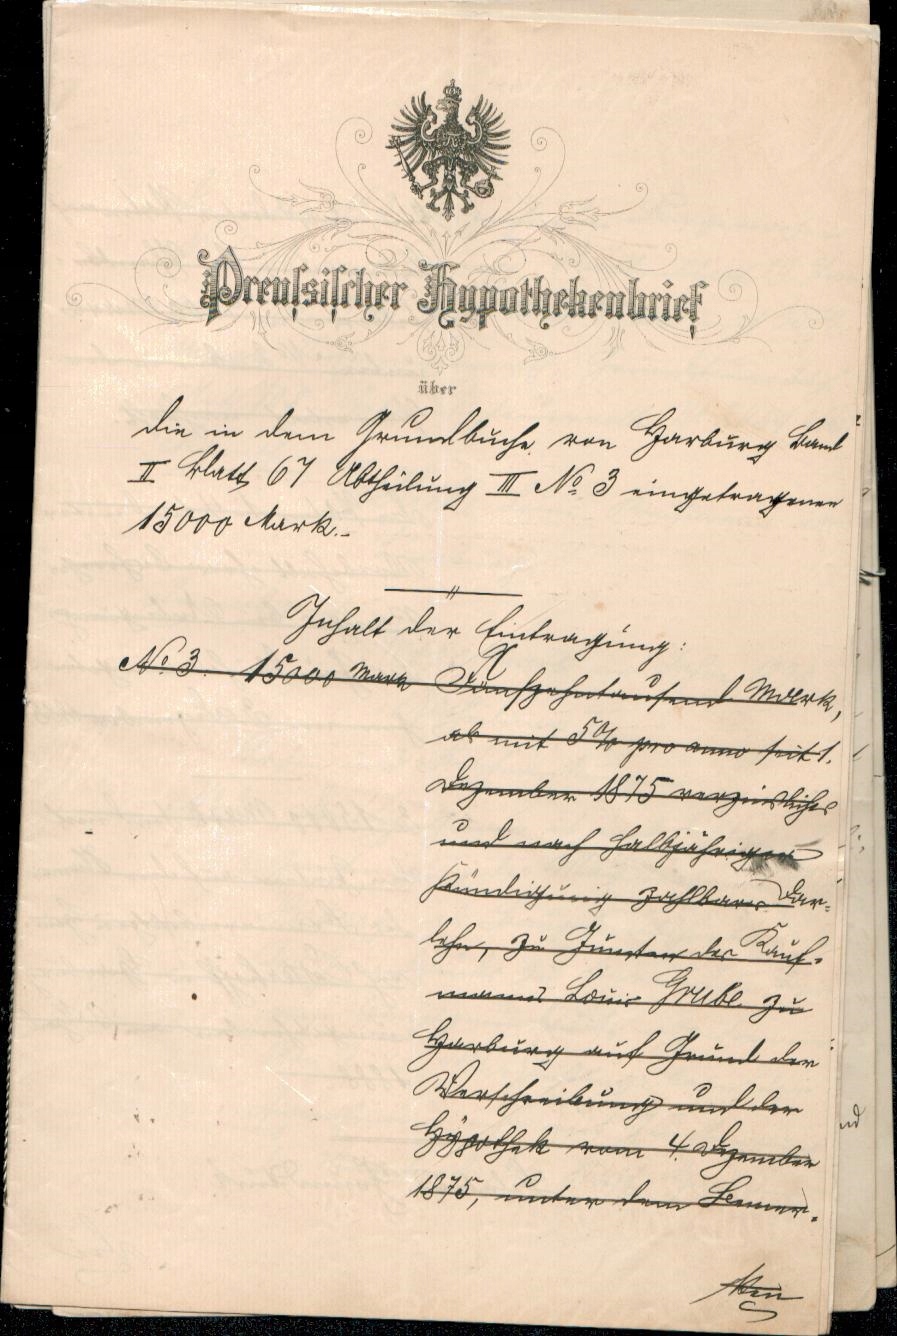 Preußischer Hypothekenbrief
über
die in dem Grundbuche von Harburg Band
II Blatt 67 Abtheilung III No. 3 eingetragenen
15000 Mark.-
Inhalt der Eintragung:
No. 3. 15000 Mark Fünfzehntausend Mark,
als mit 5% pro anno seit 1.
Dezember 1875 verzinsliches
und nach halbjähriger
Kündigung zahlbares Dar-
lehn, zu Gunsten des Kauf-
manns Louis Grube zu
Harburg auf Grund der
Verschreibung und der
Hypothek vom 4. Dezember
1875, unter dem Bemer-